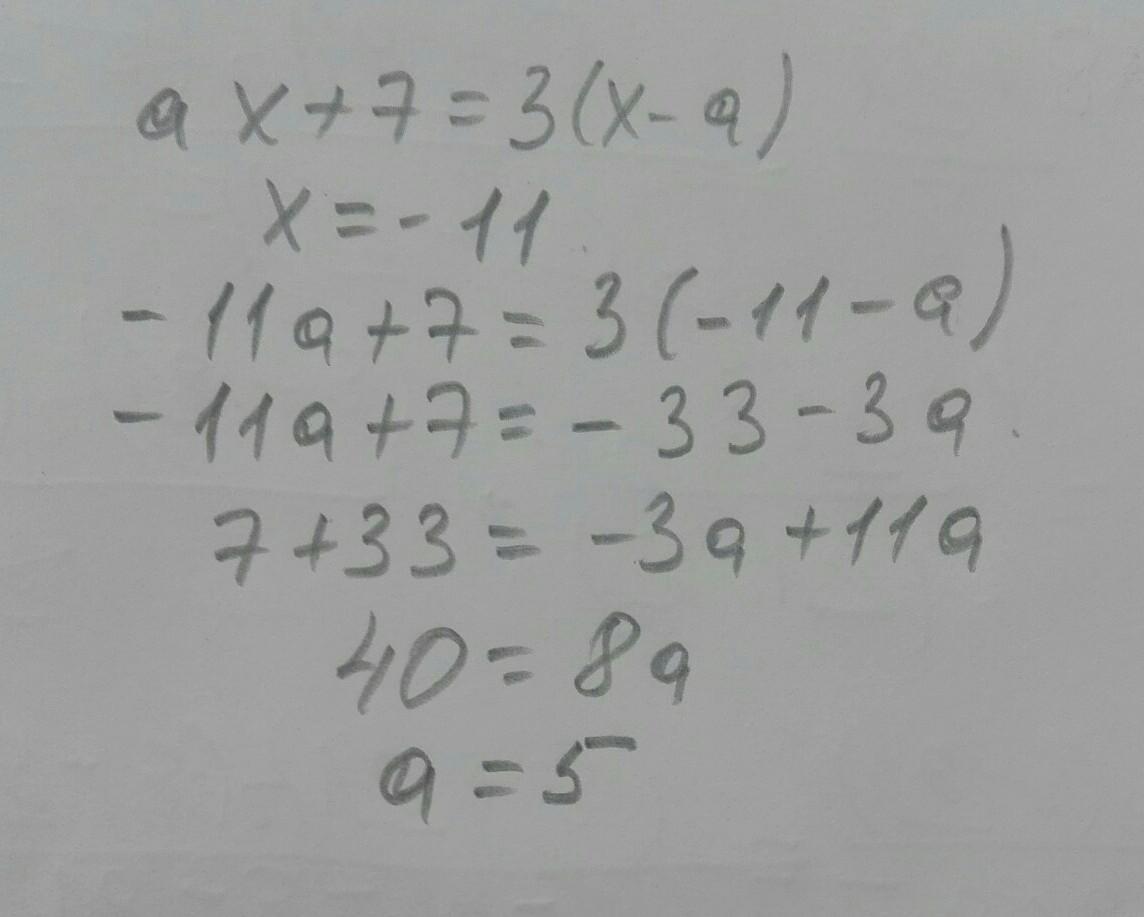 a x + 7 = 3(x - a)
x = - 11
- 11a + 7 = 3(-11 - a)
- 11a + 7 = - 33 - 3a
7 + 33 = -3a + 11a
40 = 8a
a = 5